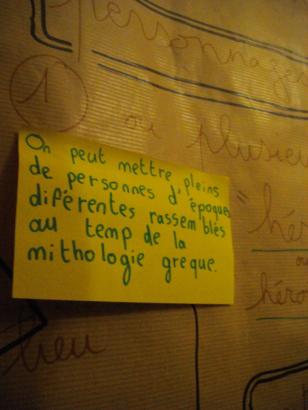 Personnage
1
ou plusieu
On peut mettre pleins
de personnes d'époques
diférentes rassemblés
au temp de la
mithologie greque.
"hér
ou
héro
lieu